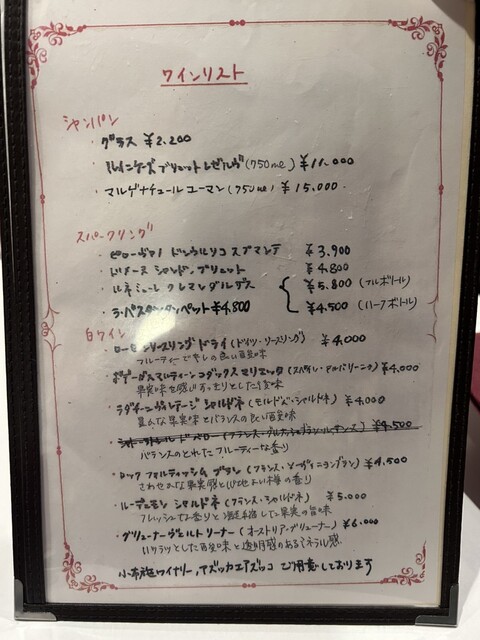 ワインリスト
シャンパン
・グラス ¥2,200
ブリュット レゼルヴ(750ml) ¥11,000
・マルゲ ナチュール ユーマン(750ml) ¥15,000
スパークリング
・ピローヴァノ ドンウルリコ スプマンテ ¥3,900
・ドメーヌ シャンドン,ブリュット ¥4,800
・ルネミューレ クレマンダルザス ¥5,800 (フルボトル)
・ラ・パスタンタンペット ¥4,800 ¥4,500 (ハーフボトル)
白ワイン
リースリング ドライ (ドイツ・リースリング) ¥4,000
フルーティーで
マルティーン コダックス マリエッタ (スペイン・アルバリーニョ) ¥4,000
果実味を感じすっきりとした
・ラダチーニ ヴィンテージ シャルドネ (モルドバ・シャルドネ) ¥4,000
果実味とバランスの良い
¥4,500
バランスのとれたフルーティーな香り
・ロック フォルティッシム ブラン (フランス・ソーヴィニヨンブラン) ¥4,500
さわやかな果実感と心地よい樽の香り
・ルーデュモン シャルドネ (フランス・シャルドネ) ¥5,000
フレッシュな香りと凝縮した果実の旨味
・グリューナーヴェルトリーナー (オーストリア・グリューナー) ¥6,000
と透明感のあるミネラル感
小布施ワイナリー,アズッカエアズッコ ご用意しております